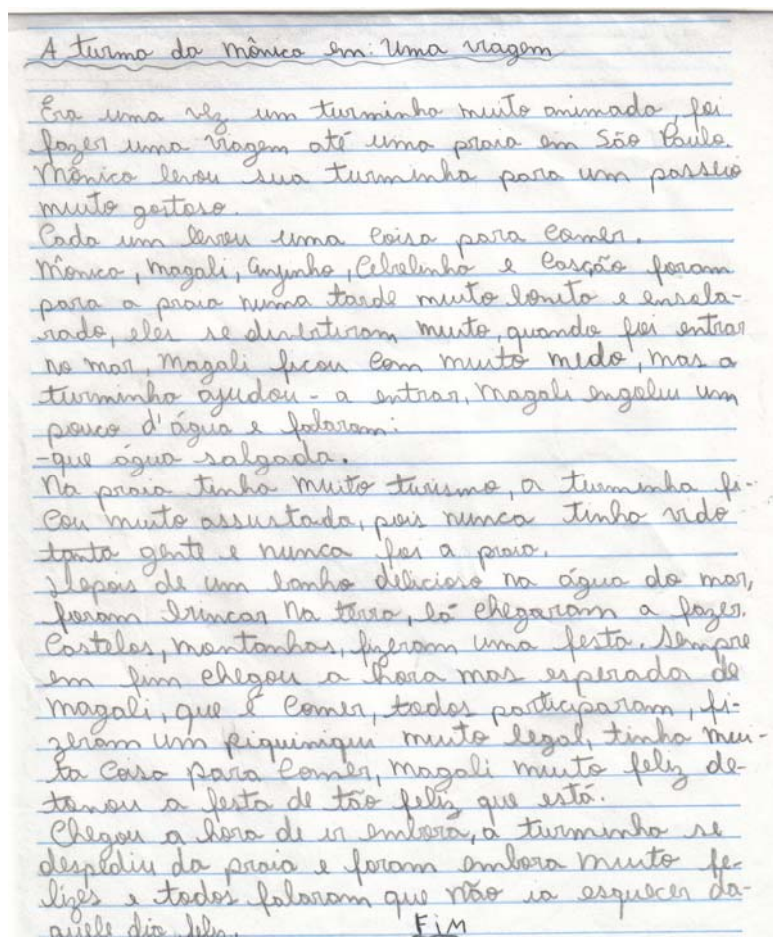 A turma da mônica em: Uma viagem
Era uma vez um turminha muito animada, foi
fazer uma viagem até uma praia em São Paulo.
Mônica levou sua turminha para um passeio
muito gostoso.
Cada um levou uma coisa para comer.
Mônica, magali, anjinho, Cebolinha e Cascão foram
para a praia numa tarde muito bonita e ensola-
rada, eles se divertiram muito, quando foi entrar
no mar, magali ficou com muito medo, mas a
turminha ajudou-a entrar, magali engoliu um
pouco d'água e falaram:
-que água salgada.
Na praia tinha muito turismo, a turminha fi-
cou muito assustada, pois nunca tinha vido
tanta gente e nunca foi a praia.
Depois de um banho delicioso na água do mar,
foram brincar na terra, lá chegaram a fazer.
Castelos, montanhas, fizeram uma festa. Sempre
em fim chegou a hora mas esperada de
magali, que é comer, todos participaram, fi-
zeram um piquiniqui muito legal, tinha mui-
ta coisa para comer, magali muito feliz de-
tonou a festa de tão feliz que está.
Chegou a hora de ir embora, a turminha se
despediu da praia e foram embora muito fe-
lizes e todos falaram que não ia esquecer da-
quele dia feliz. FiM